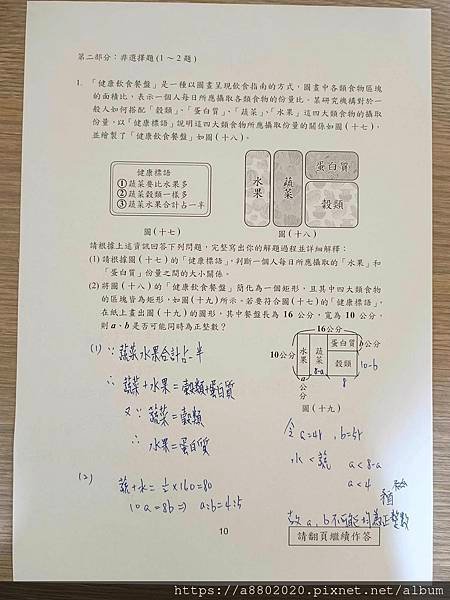 第二部分：非選擇題(1～2題)
1. 「健康飲食餐盤」是一種以圖畫呈現飲食指南的方式，圖畫中各類食物區塊
的面積比，表示一個人每日所應攝取各類食物的份量比。某研究機構對於一
般人如何搭配「穀類」、「蛋白質」、「蔬菜」、「水果」這四大類食物的攝取
份量，以「健康標語」說明這四大類食物所應攝取份量的關係如圖(十七)，
並繪製了「健康飲食餐盤」如圖(十八)。
健康標語
①蔬菜要比水果多
②蔬菜穀類一樣多
③蔬菜水果合計占一半
圖(十七)
水果
蔬菜
蛋白質
穀類
圖(十八)
請根據上述資訊回答下列問題，完整寫出你的解題過程並詳細解釋：
(1)請根據圖(十七)的「健康標語」，判斷一個人每日所應攝取的「水果」和
「蛋白質」份量之間的大小關係。
(2)將圖(十八)的「健康飲食餐盤」簡化為一個矩形，且其中四大類食物
的區塊皆為矩形，如圖(十九)所示。若要符合圖(十七)的「健康標語」，
在紙上畫出圖(十九)的圖形，其中餐盤長為 16 公分，寬為 10 公分，
則 a、b 是否可能同時為正整數？
16公分
10公分
水果
蔬菜
蛋白質
穀類
b公分
a公分
8-a
8
10-b
圖(十九)
(1) ∵ 蔬菜水果合計占一半
∴ 蔬菜+水果=穀類+蛋白質
又∵ 蔬菜=穀類
∴ 水果=蛋白質
(2) 蔬+水=½×160=80
10a=8b ⇒ a:b=4:5
令 a=4r , b=5r
水<蔬 a<8-a
a<4
故 a、b不可能均為正整數
10
請翻頁繼續作答
https://a8802020.pixnet.net/album